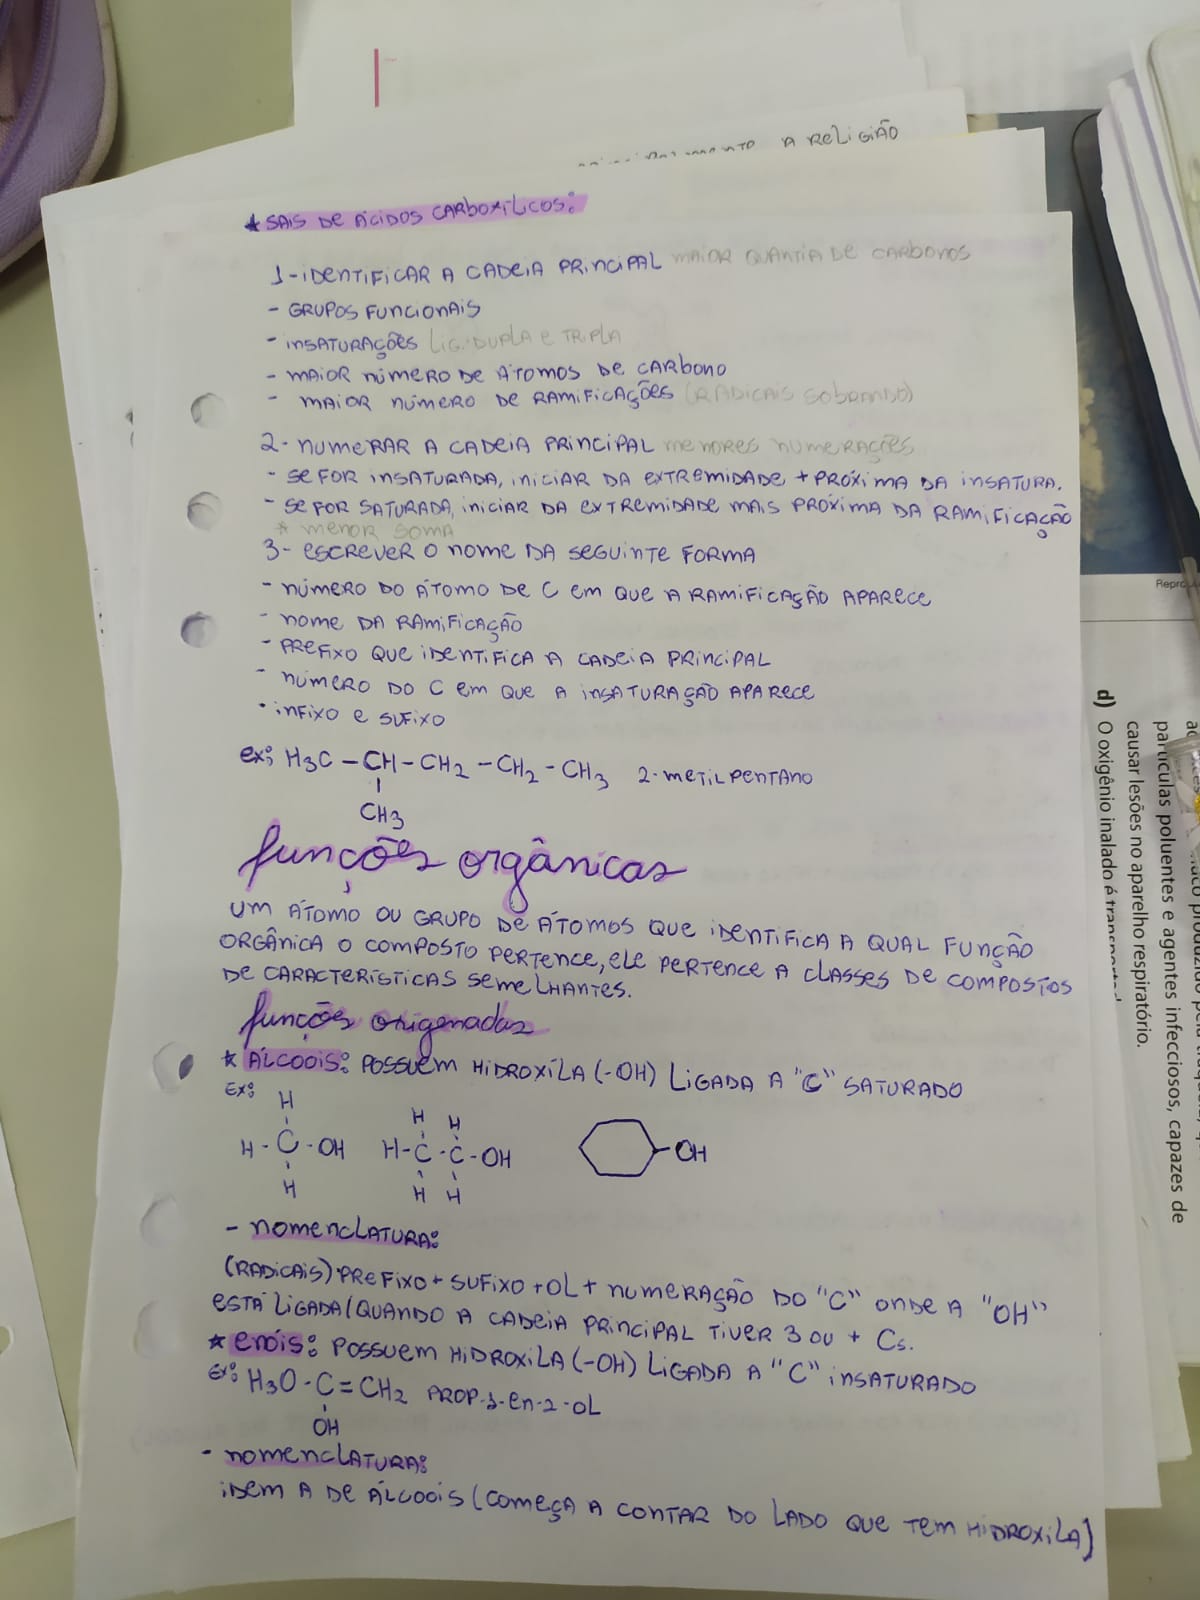 A RELIGIÃO
* SAIS DE ÁCIDOS CARBOXÍLICOS:
1- IDENTIFICAR A CADEIA PRINCIPAL MAIOR QUANTIA DE CARBONOS
- GRUPOS FUNCIONAIS
- INSATURAÇÕES LIG. DUPLA E TRIPLA
- MAIOR NÚMERO DE ÁTOMOS DE CARBONO
- MAIOR NÚMERO DE RAMIFICAÇÕES (RADICAIS SOBRANDO)
2- NUMERAR A CADEIA PRINCIPAL MENORES NUMERAÇÕES
- SE FOR INSATURADA, INICIAR DA EXTREMIDADE + PRÓXIMA DA INSATURA.
- SE FOR SATURADA, INICIAR DA EXTREMIDADE MAIS PRÓXIMA DA RAMIFICAÇÃO
* MENOR SOMA
3- ESCREVER O NOME DA SEGUINTE FORMA
- NÚMERO DO ÁTOMO DE C EM QUE A RAMIFICAÇÃO APARECE
- NOME DA RAMIFICAÇÃO
- PREFIXO QUE IDENTIFICA A CADEIA PRINCIPAL
- NÚMERO DO C EM QUE A INSATURAÇÃO APARECE
- INFIXO E SUFIXO
EX: H3C - CH - CH2 - CH2 - CH3 2-METILPENTANO
CH3
funções orgânicas
UM ÁTOMO OU GRUPO DE ÁTOMOS QUE IDENTIFICA A QUAL FUNÇÃO
ORGÂNICA O COMPOSTO PERTENCE, ELE PERTENCE A CLASSES DE COMPOSTOS
DE CARACTERÍSTICAS SEMELHANTES.
funções oxigenadas
* ÁLCOOIS: POSSUEM HIDROXÍLA (-OH) LIGADA A "C" SATURADO
EX:
H H H
H - C - OH H - C - C - OH OH
H H H
- NOMENCLATURA:
(RADICAIS) PREFIXO + SUFIXO + OL + NUMERAÇÃO DO "C" ONDE A "OH"
ESTÁ LIGADA (QUANDO A CADEIA PRINCIPAL TIVER 3 OU + Cs.
* ENÓIS: POSSUEM HIDROXILA (-OH) LIGADA A "C" INSATURADO
EX: H3O - C = CH2 PROP-1-EN-2-OL
OH
- NOMENCLATURA:
IDEM A DE ÁLCOOIS (COMEÇA A CONTAR DO LADO QUE TEM HIDROXILA)
Repro
partículas poluentes e agentes infecciosos, capazes de
causar lesões no aparelho respiratório.
d) O oxigênio inalado é